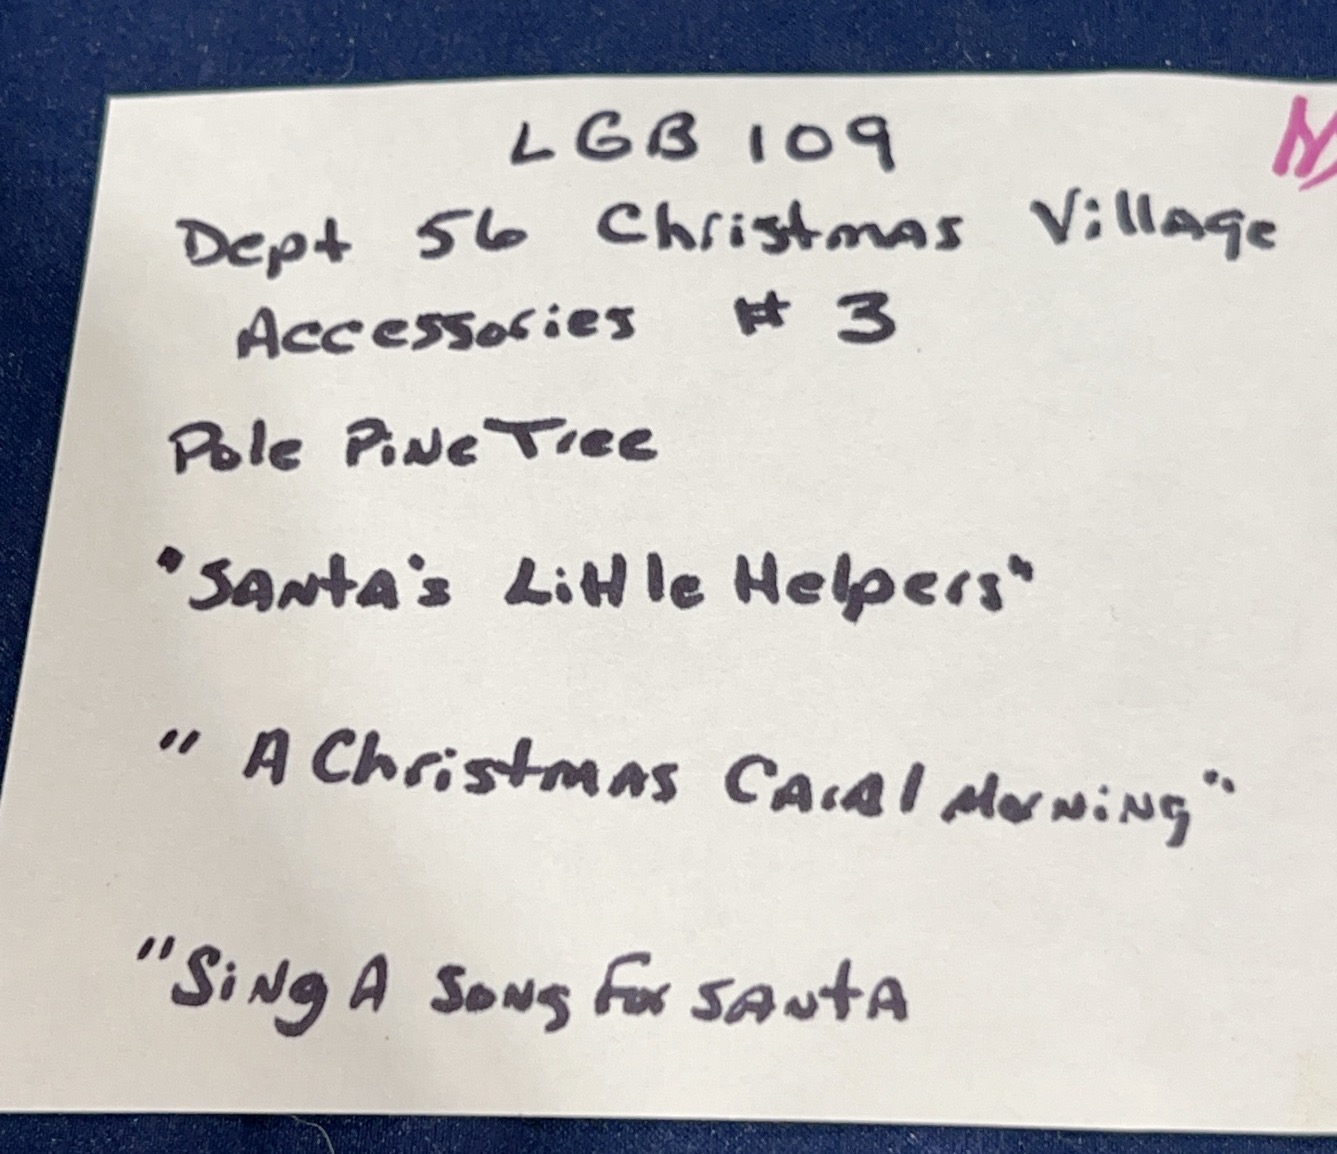 LGB 109
Dept 56 Christmas Village
Accessories # 3
Pole Pine Tree
"Santa's Little Helpers"
" A Christmas Caral Morning"
"Sing A Song For Santa